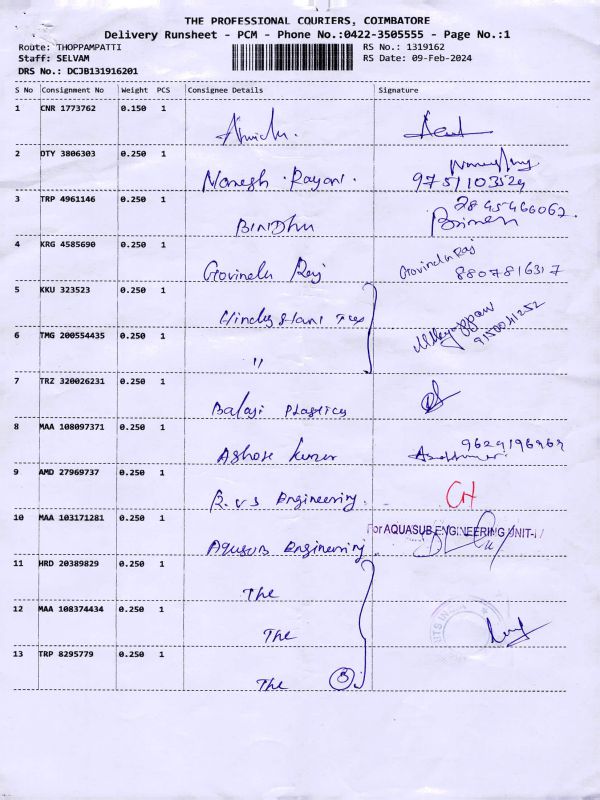 THE PROFESSIONAL COURIERS, COIMBATORE
Delivery Runsheet - PCM - Phone No.:0422-3505555 - Page No.:1
Route: THOPPAMPATTI RS No.: 1319162
Staff: SELVAM RS Date: 09-Feb-2024
DRS No.: DCJB131916201
S No Consignment No Weight PCS Consignee Details Signature
1 CNR 1773762 0.150 1
2 DTY 3806303 0.250 1
Manegh Rayani. 9751103524
3 TRP 4961146 0.250 1
BINDHU
4 KRG 4585690 0.250 1
Govindu Raj Govindu Raj 8807816317
5 KKU 323523 0.250 1
6 TMG 200554435 0.250 1
"
7 TRZ 320026231 0.250 1
Balaji Plastics
8 MAA 108097371 0.250 1
Ashok kumar
9 AMD 27969737 0.250 1
R.V.S Engineering. CH
10 MAA 103171281 0.250 1
For AQUASUB ENGINEERING UNIT-
Aquasub Engineering
11 HRD 20389829 0.250 1
The
12 MAA 108374434 0.250 1
The
13 TRP 8295779 0.250 1
The